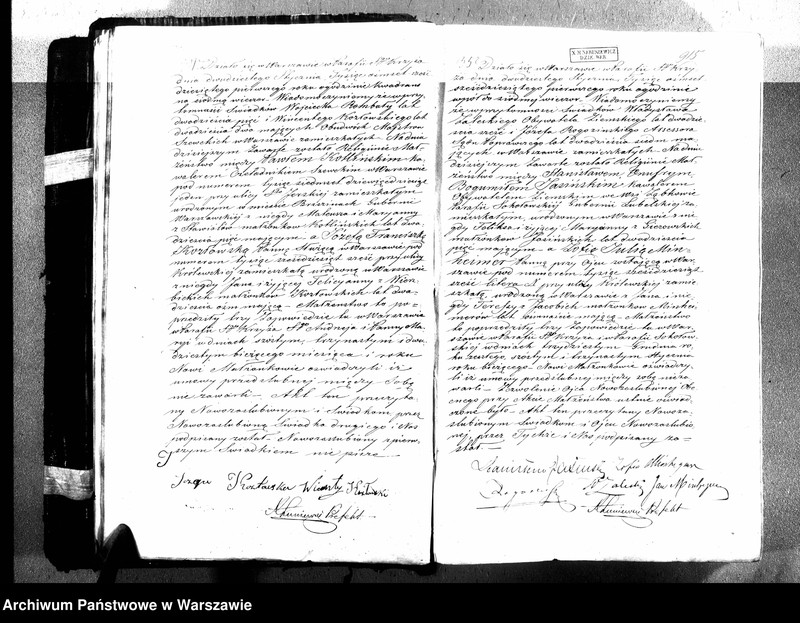 Działo się w Warszawie w Parafii Sgo Krzyża
dnia dwudziestego Stycznia Tysiąc ośmset sześć
dziesiątego pierwszego roku o godzinie kwadrans
na siódmą wieczór. Wiadomo czynimy że w przy
tomności Świadków Wojciecha lat
dwudziestu pięć i Wincentego Kozłowskiego lat
dwadzieścia dwa mających Obudwóch Majstrów
Szewckich w Warszawie zamieszkałych. Na dniu
dzisiejszym zawarte zostało Religijne Mał-
żeństwo między Pawłem Kotlińskim ka-
walerem Czeladnikiem Szewckim w Warszawie
pod numerem tysiąc siedmset dziewięćdziesiąt
jeden przy ulicy Sto Jerskiej zamieszkałym
urodzonym w mieście Brzezinach Gubernii
Warszawskiej z niegdy Mateusza i Maryanny
małżonków Kotlińskich lat dwa-
dzieścia pięć mającym a Józefą Franciszką
Kozłowską Panną Służącą w Warszawie pod
numerem tysiąc sześćdziesiąt sześć przy ulicy
Królewskiej zamieszkałą urodzoną w Warszawie
z niegdy Jana i żyjącej Felicyanny z
małżonków Kozłowskich lat dwa-
dzieścia ośm mającą. Małżeństwo to po-
przedziły trzy Zapowiedzie tu w Warszawie
w Parafii Sgo Krzyża Sgo Andrzeja i Panny Ma-
ryi w dniach szóstym, trzynastym i dwu-
dziestym bieżącego miesiąca i roku
Nowi Małżonkowie oświadczyli iż
umowy przedślubnej między Sobą
nie zawarli. Akt ten przeczyta-
ny Nowozaślubionym i Świadkom, przez
Nowozaślubioną Świadka drugiego i Nas
podpisany został. Nowozaślubiony z pierw-
szym Świadkiem nie pisze
Kozłowska Wincenty Kozłowski
X M NIEBUSZEWICZ
Działo się w Warszawie w Parafii Sgo Krzy-
ża dnia dwudziestego Stycznia Tysiąc ośmset
sześćdziesiątego pierwszego roku o godzinie
wpół do siódmej wieczór. Wiadomo czynimy
że w przytomności Świadków Władysława
Zaleskiego Obywatela Ziemskiego lat dwadzie-
ścia sześć i Józefa Rogozińskiego Assesora
Sądu Poprawczego lat dwadzieścia siedm ma-
jących w Warszawie zamieszkałych. Na dniu
dzisiejszym zawarte zostało Religijne Mał-
żeństwo między Stanisławem Onufrym
Bogumiłem Jasińskim Kawalerem
Obywatelem Ziemskim we Wsi Ząbkowie
Parafii Sokołowskiej Gubernii Lubelskiej za-
mieszkałym, urodzonym w Warszawie z nie-
gdy Felixa i żyjącej Maryanny z
małżonków Jasińskich lat dwadzieścia
pięć mającym a Zofią Julią Min-
heimer Panną przy Ojcu zostającą w War-
szawie pod numerem tysiąc sześćdziesiąt
sześć litera A przy ulicy Królewskiej zamie-
szkałą urodzoną w Warszawie z Jana i nie-
gdy Teresy z małżonków Minhei-
merów lat mającą. Małżeństwo
to poprzedziły trzy Zapowiedzie tu w War-
szawie w Parafii Sgo Krzyża i w Parafii Sokołow-
skiej w dniach trzydziestym Grudnia ro-
ku zeszłego, szóstym i trzynastym Stycznia
roku bieżącego. Nowi Małżonkowie oświadczy-
li iż umowy przedślubnej między sobą nie za-
warli. Zezwolenie Ojca Nowozaślubionej Obe-
cnego przy Akcie Małżeństwa ustnie oświad-
czone było. Akt ten przeczytany Nowoza-
ślubionym Świadkom i Ojcu Nowozaślubio-
nej, przez Tychże i Nas podpisany zo-
stał.
Stanisław Jasiński Zofia
Jan
Archiwum Państwowe w Warszawie